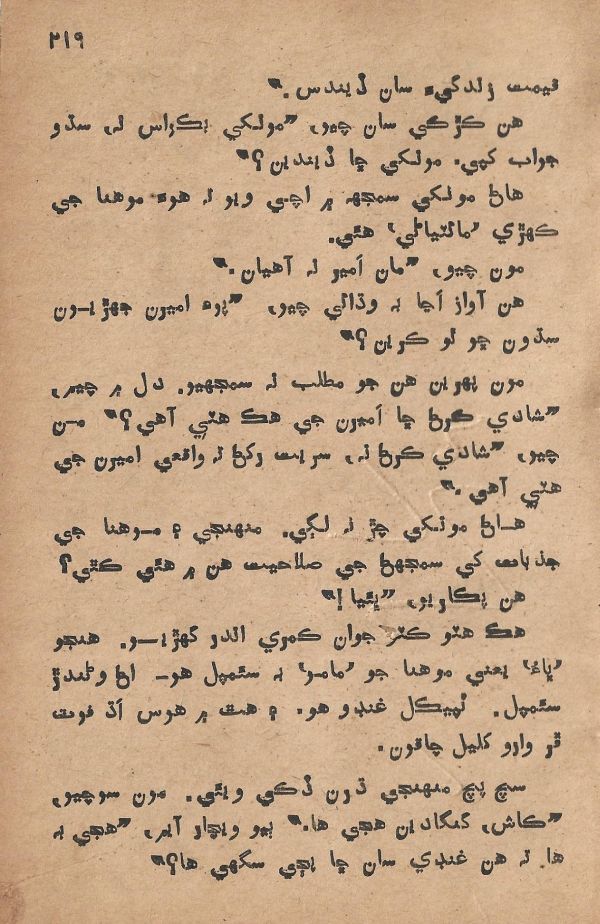 ۲۱۹
قيمت زندگيءَ سان ڏيندس.”
هن ڪڙڪي سان چيو، “مونکي بڪواس نه، سڌو
جواب کپي. مونکي ڇا ڏيندين؟”
هاڻ مونکي سمجهه ۾ اچي ويو ته هوءَ موهنا جي
ڪهڙي ‘مائٽياڻي’ هئي.
مون چيو، “مان اَمير نه آهيان.”
هن آواز اَڃا به وڌائي چيو، “پوءِ اميرن جهڙيون
سڌون ڇو ٿو ڪرين؟”
مون پهرين هن جو مطلب نه سمجهيو. دل ۾ چيم،
“شادي ڪرڻ ڇا اَميرن جي هڪ هٽي آهي؟” من
چيو، “شادي ڪرڻ نه، سريت رکڻ ته واقعي اميرن جي
هٽي آهي.”
هاڻ مونکي چڙ نه لڳي. منهنجي ۽ موهنا جي
جذبات کي سمجهڻ جي صلاحيت هن ۾ هئي ڪٿي؟
هن پڪاريو، “ڀئيا!”
هڪ هٽو ڪٽو جوان ڪمري اندر گهڙيو. هنجو
‘ڀاءُ’ يعني موهنا جو ‘مامو’ به سئمپل هو- اڻ وڻندڙ
سئمپل. ٺهيڪل غنڊو هو. ۽ هٿ ۾ هوس اَڌ فوٽ
ڦر وارو کليل چاقون.
سچ پچ منهنجي ڌرن ڌڪي ويئي. مون سوچيو،
“ڪاش، گنگادين هجي ها.” ٻيو ويچار آيم، “هجي به
ها ته هن غنڊي سان ڇا پڄي سگهي ها؟”